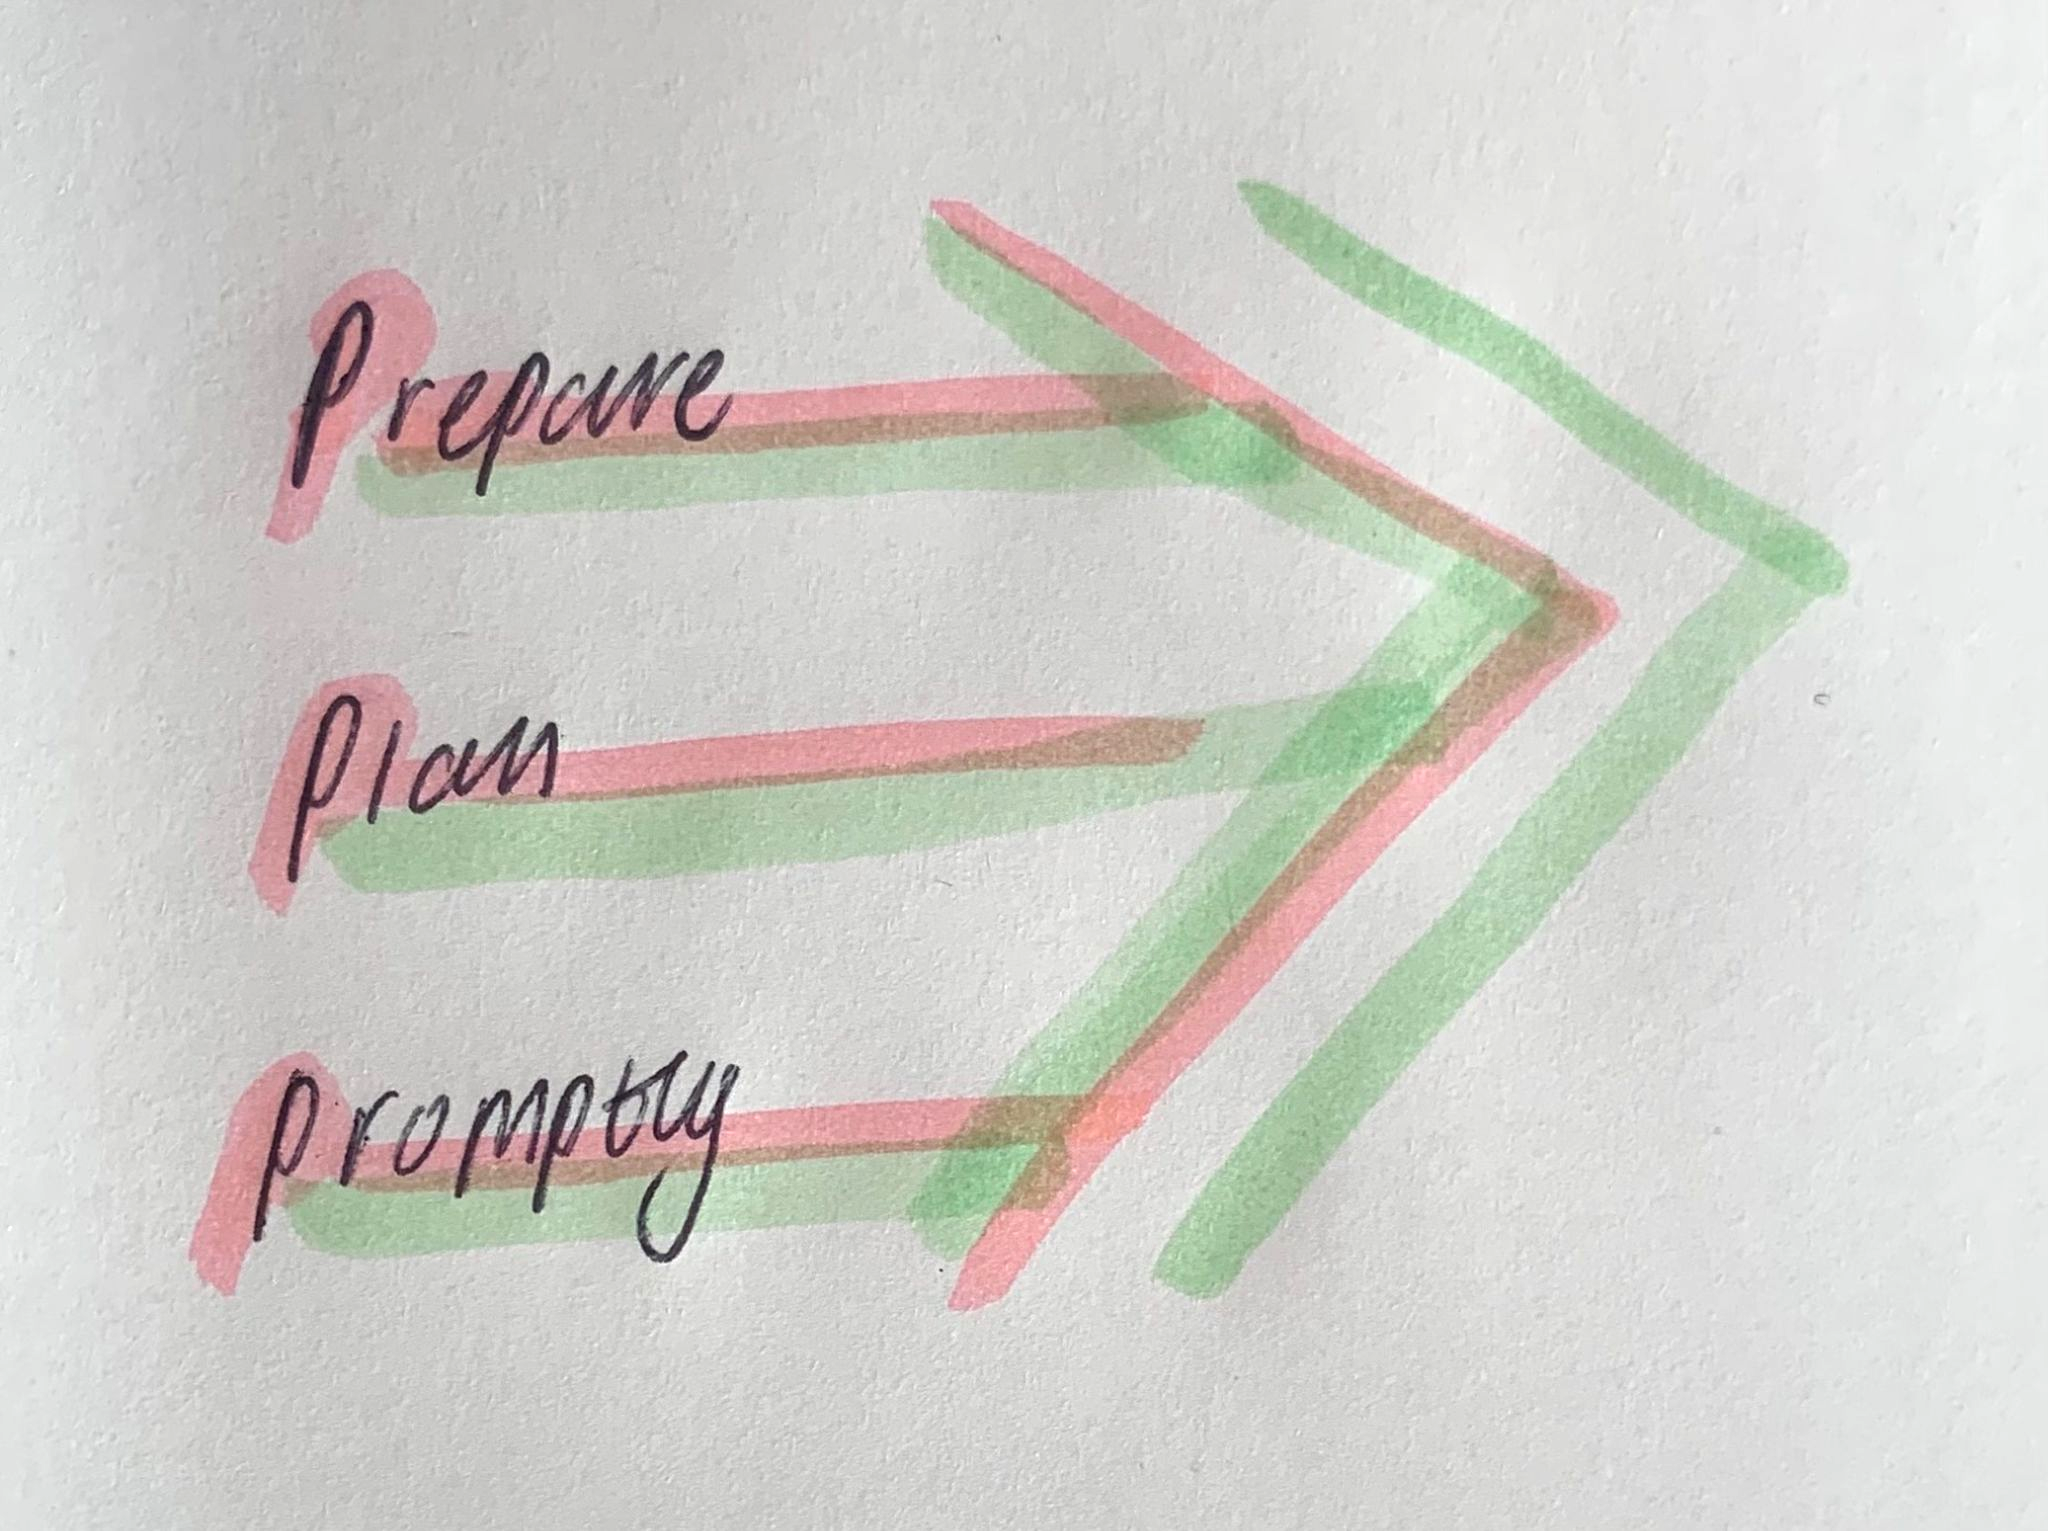 Prepare
Plan
promptly